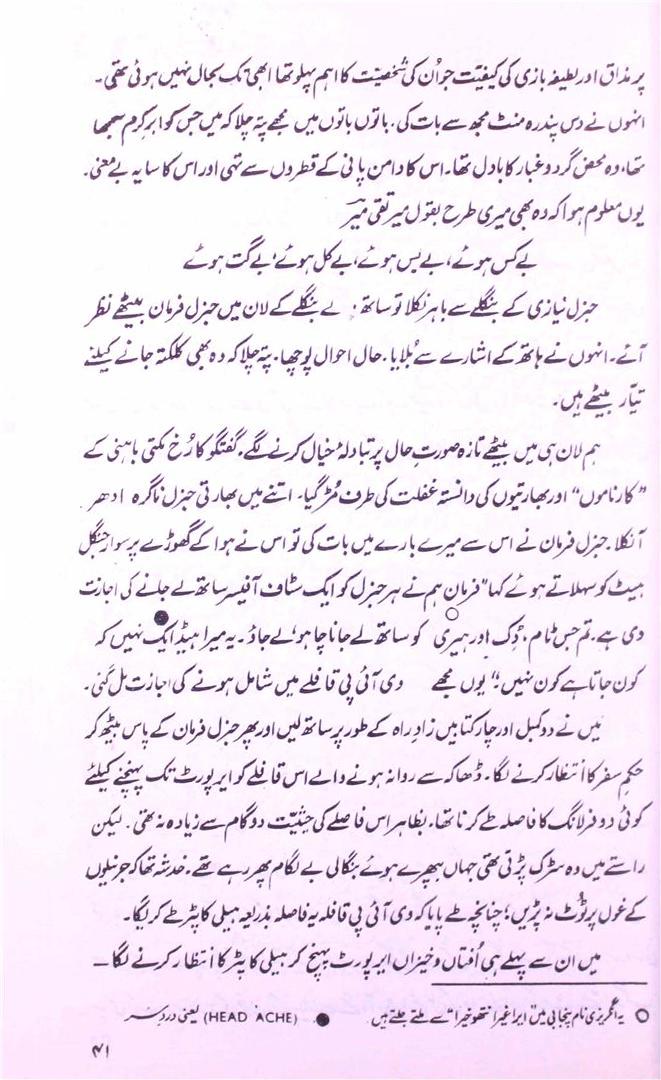 پر مذاق اور لطیفہ بازی کی کیفیت جو اُن کی شخصیت کا اہم پہلو تھا ابھی تک بحال نہیں ہوئی تھی۔
انہوں نے دس پندرہ منٹ مجھ سے بات کی۔ باتوں باتوں میں مجھے پتہ چلا کہ میں جس کو ابرِ کرم سمجھا
تھا، وہ محض گرد و غبار کا بادل تھا۔ اس کا دامن پانی کے قطروں سے تہی اور اس کا سایہ بے معنی۔
یوں معلوم ہوا کہ وہ بھی میری طرح بقول میر تقی میر
بے کس ہوئے، بے بس ہوئے، بے کل ہوئے، بے گت ہوئے
جنرل نیازی کے بنگلے سے باہر نکلا تو ساتھ کے بنگلے کے لان میں جنرل فرمان بیٹھے نظر
آئے۔ انہوں نے ہاتھ کے اشارے سے بُلایا۔ حال احوال پوچھا۔ پتہ چلا کہ وہ بھی کلکتہ جانے کیلئے
تیّار بیٹھے ہیں۔
ہم لان ہی میں بیٹھے تازہ صورتِ حال پر تبادلہ خیال کرنے لگے۔ گفتگو کا رُخ مکتی باہنی کے
”کارناموں“ اور بھارتیوں کی دانستہ غفلت کی طرف مُڑ گیا۔ اتنے میں بھارتی جنرل ناگرہ ادھر
آنکلا۔ جنرل فرمان نے اس سے میرے بارے میں بات کی تو اس نے ہوا کے گھوڑے پر سوار جنگل
ہیٹ کو سہلاتے ہوئے کہا ”فرمان ہم نے ہر جنرل کو ایک سٹاف آفیسر ساتھ لے جانے کی اجازت
دی ہے۔ تم جس ٹام، ڈِک اور ہیری ○ کو ساتھ لے جانا چاہو، لے جاؤ۔ یہ میرا ہیڈ ایک ● نہیں کہ
کون جاتا ہے کون نہیں۔“ یوں مجھے وی آئی پی قافلے میں شامل ہونے کی اجازت مل گئی۔
میں نے دو کمبل اور چار کتابیں زادِ راہ کے طور پر ساتھ لیں اور پھر جنرل فرمان کے پاس بیٹھ کر
حکمِ سفر کا انتظار کرنے لگا۔ ڈھاکہ سے روانہ ہونے والے اس قافلے کو ایر پورٹ تک پہنچنے کیلئے
کوئی دو فرلانگ کا فاصلہ طے کرنا تھا۔ بظاہر اس فاصلے کی حیثیت دو گام سے زیادہ نہ تھی۔ لیکن
راستے میں وہ سڑک پڑتی تھی جہاں بپھرے ہوئے بنگالی بے لگام پھر رہے تھے۔ خدشہ تھا کہ جرنیلوں
کے غول پر ٹوٹ نہ پڑیں؛ چنانچہ طے پایا کہ وی آئی پی قافلہ یہ فاصلہ بذریعہ ہیلی کاپٹر طے کریگا۔
میں ان سے پہلے ہی اُفتاں و خیزاں ایر پورٹ پہنچ کر ہیلی کاپٹر کا انتظار کرنے لگا۔
○ یہ انگریزی نام پنجابی میں ”ایرا غیرا نتھو خیرا“ سے ملتے جلتے ہیں۔ ● (HEAD ACHE) یعنی دردِ سر
۴۱